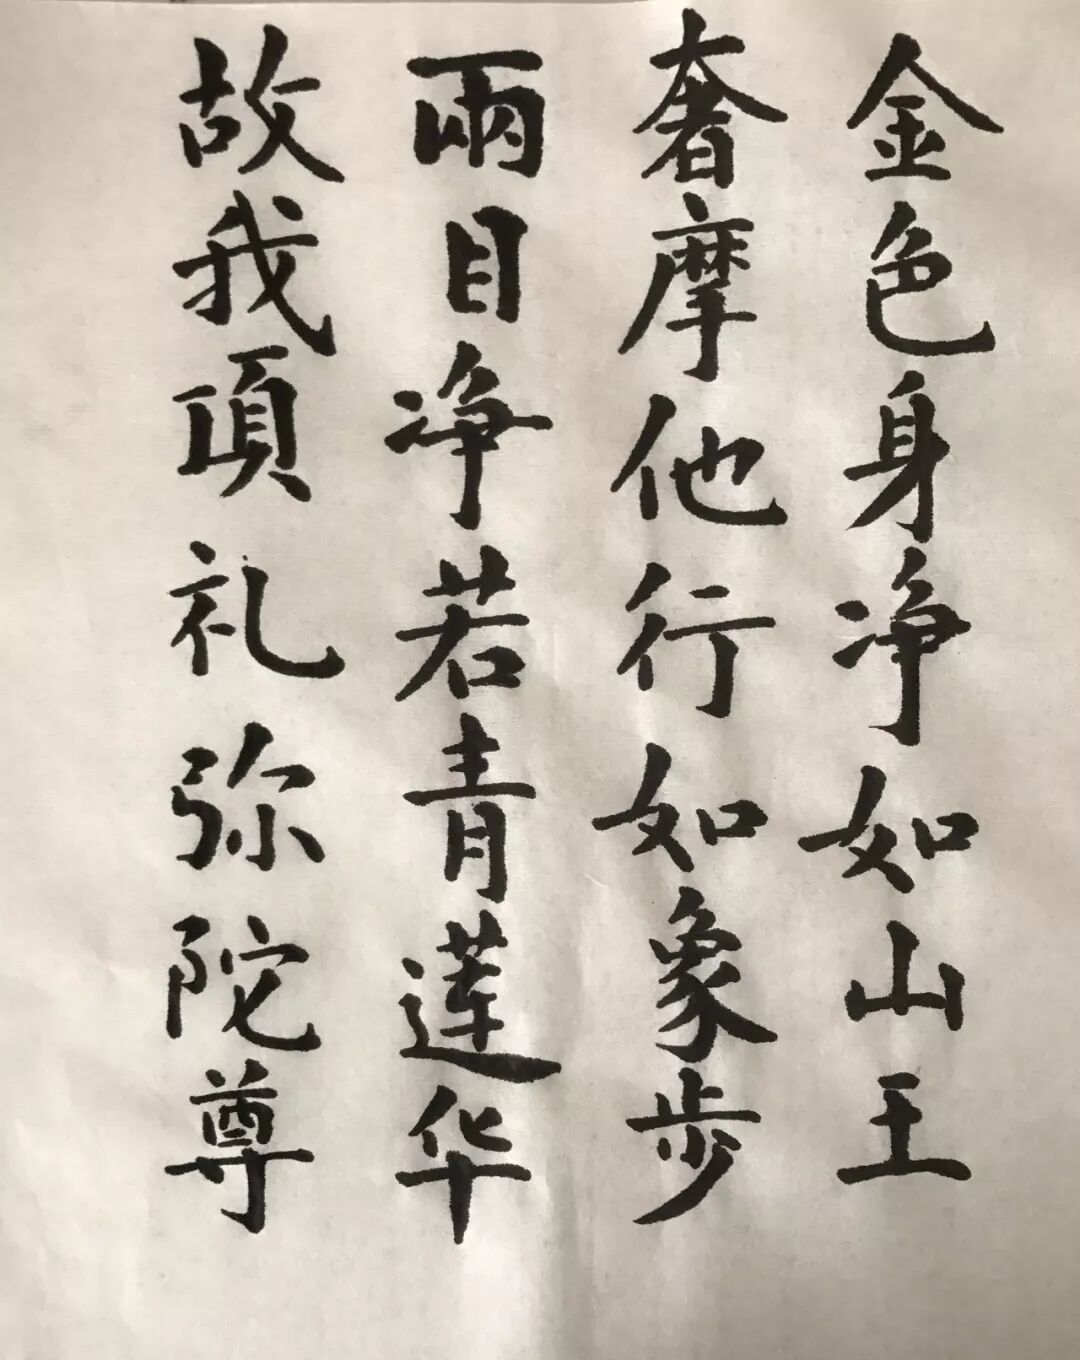 金色身净如山王
奢摩他行如象步
兩目净若青莲华
故我頂礼弥陀尊